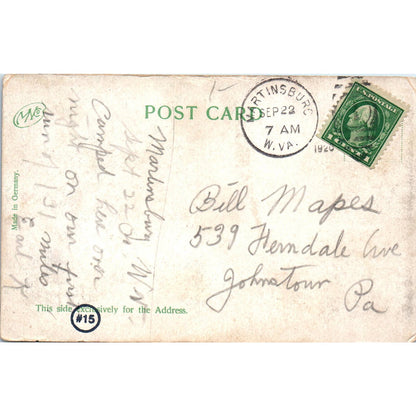 MVCo
POST CARD
MARTINSBURG
SEP 22
7 AM
W. VA.
1920
U.S. POSTAGE
Made in Germany.
Martinsburg W. Va.
Sept 22
Camped here over
night on our first
131 miles
Bill Mapes
539 Ferndale Ave
Johnstown
Pa
This side exclusively for the Address.
#15